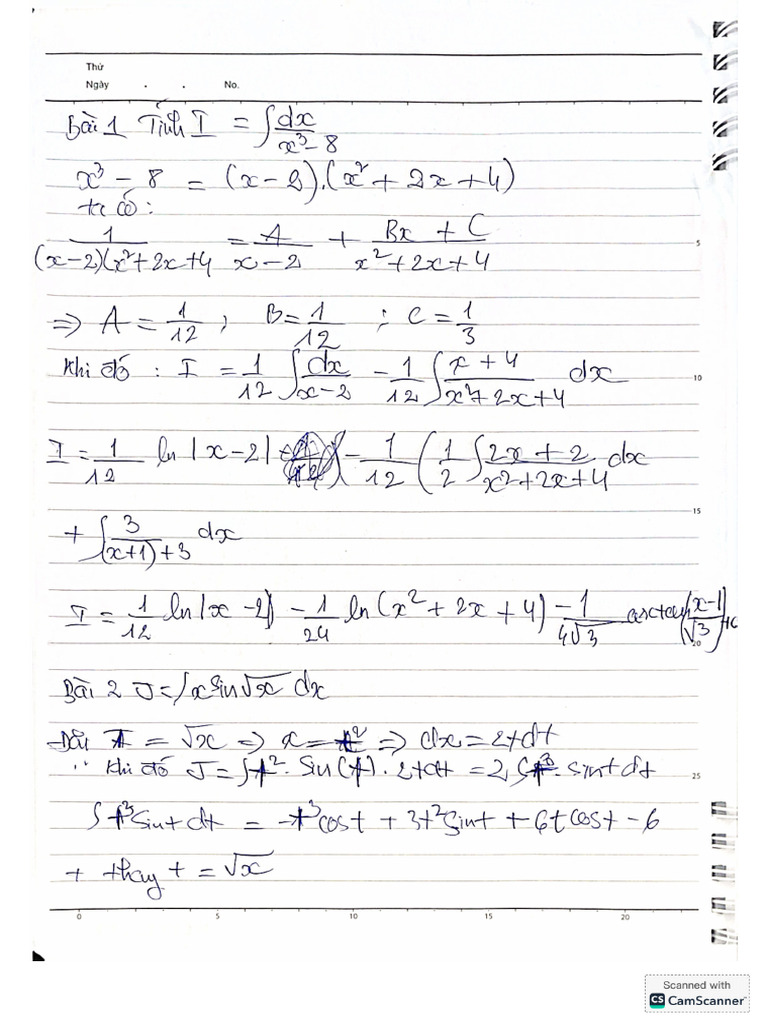 Thứ
Ngày . . No.
Bài 1 Tính I = ∫ dx/(x³ - 8)
x³ - 8 = (x - 2).(x² + 2x + 4)
ta có:
1/((x-2)(x²+2x+4) = A/(x-2) + (Bx + C)/(x²+2x+4)
5
=> A = 1/12 ; B = 1/12 ; C = 1/3
Khi đó : I = 1/12 ∫ dx/(x-2) - 1/12 ∫ (x+4)/(x²+2x+4) dx
10
I = 1/12 ln|x-2| - 1/12 (1/2 ∫ (2x+2)/(x²+2x+4) dx
15
+ ∫ 3/((x+1)+3) dx
I = 1/12 ln|x-2| - 1/24 ln(x²+2x+4) - 1/(4√3) arctan((x-1)/√3)+C
20
Bài 2 J = ∫x sin√x dx
Đặt t = √x => x = t² => dx = 2tdt
Khi đó J = ∫t². sin(t). 2tdt = 2∫t³. sint dt
25
∫t³sint dt = -t³cost + 3t²sint + 6tcost - 6
+ thay t = √x
0 5 10 15 20
Scanned with
CS CamScanner